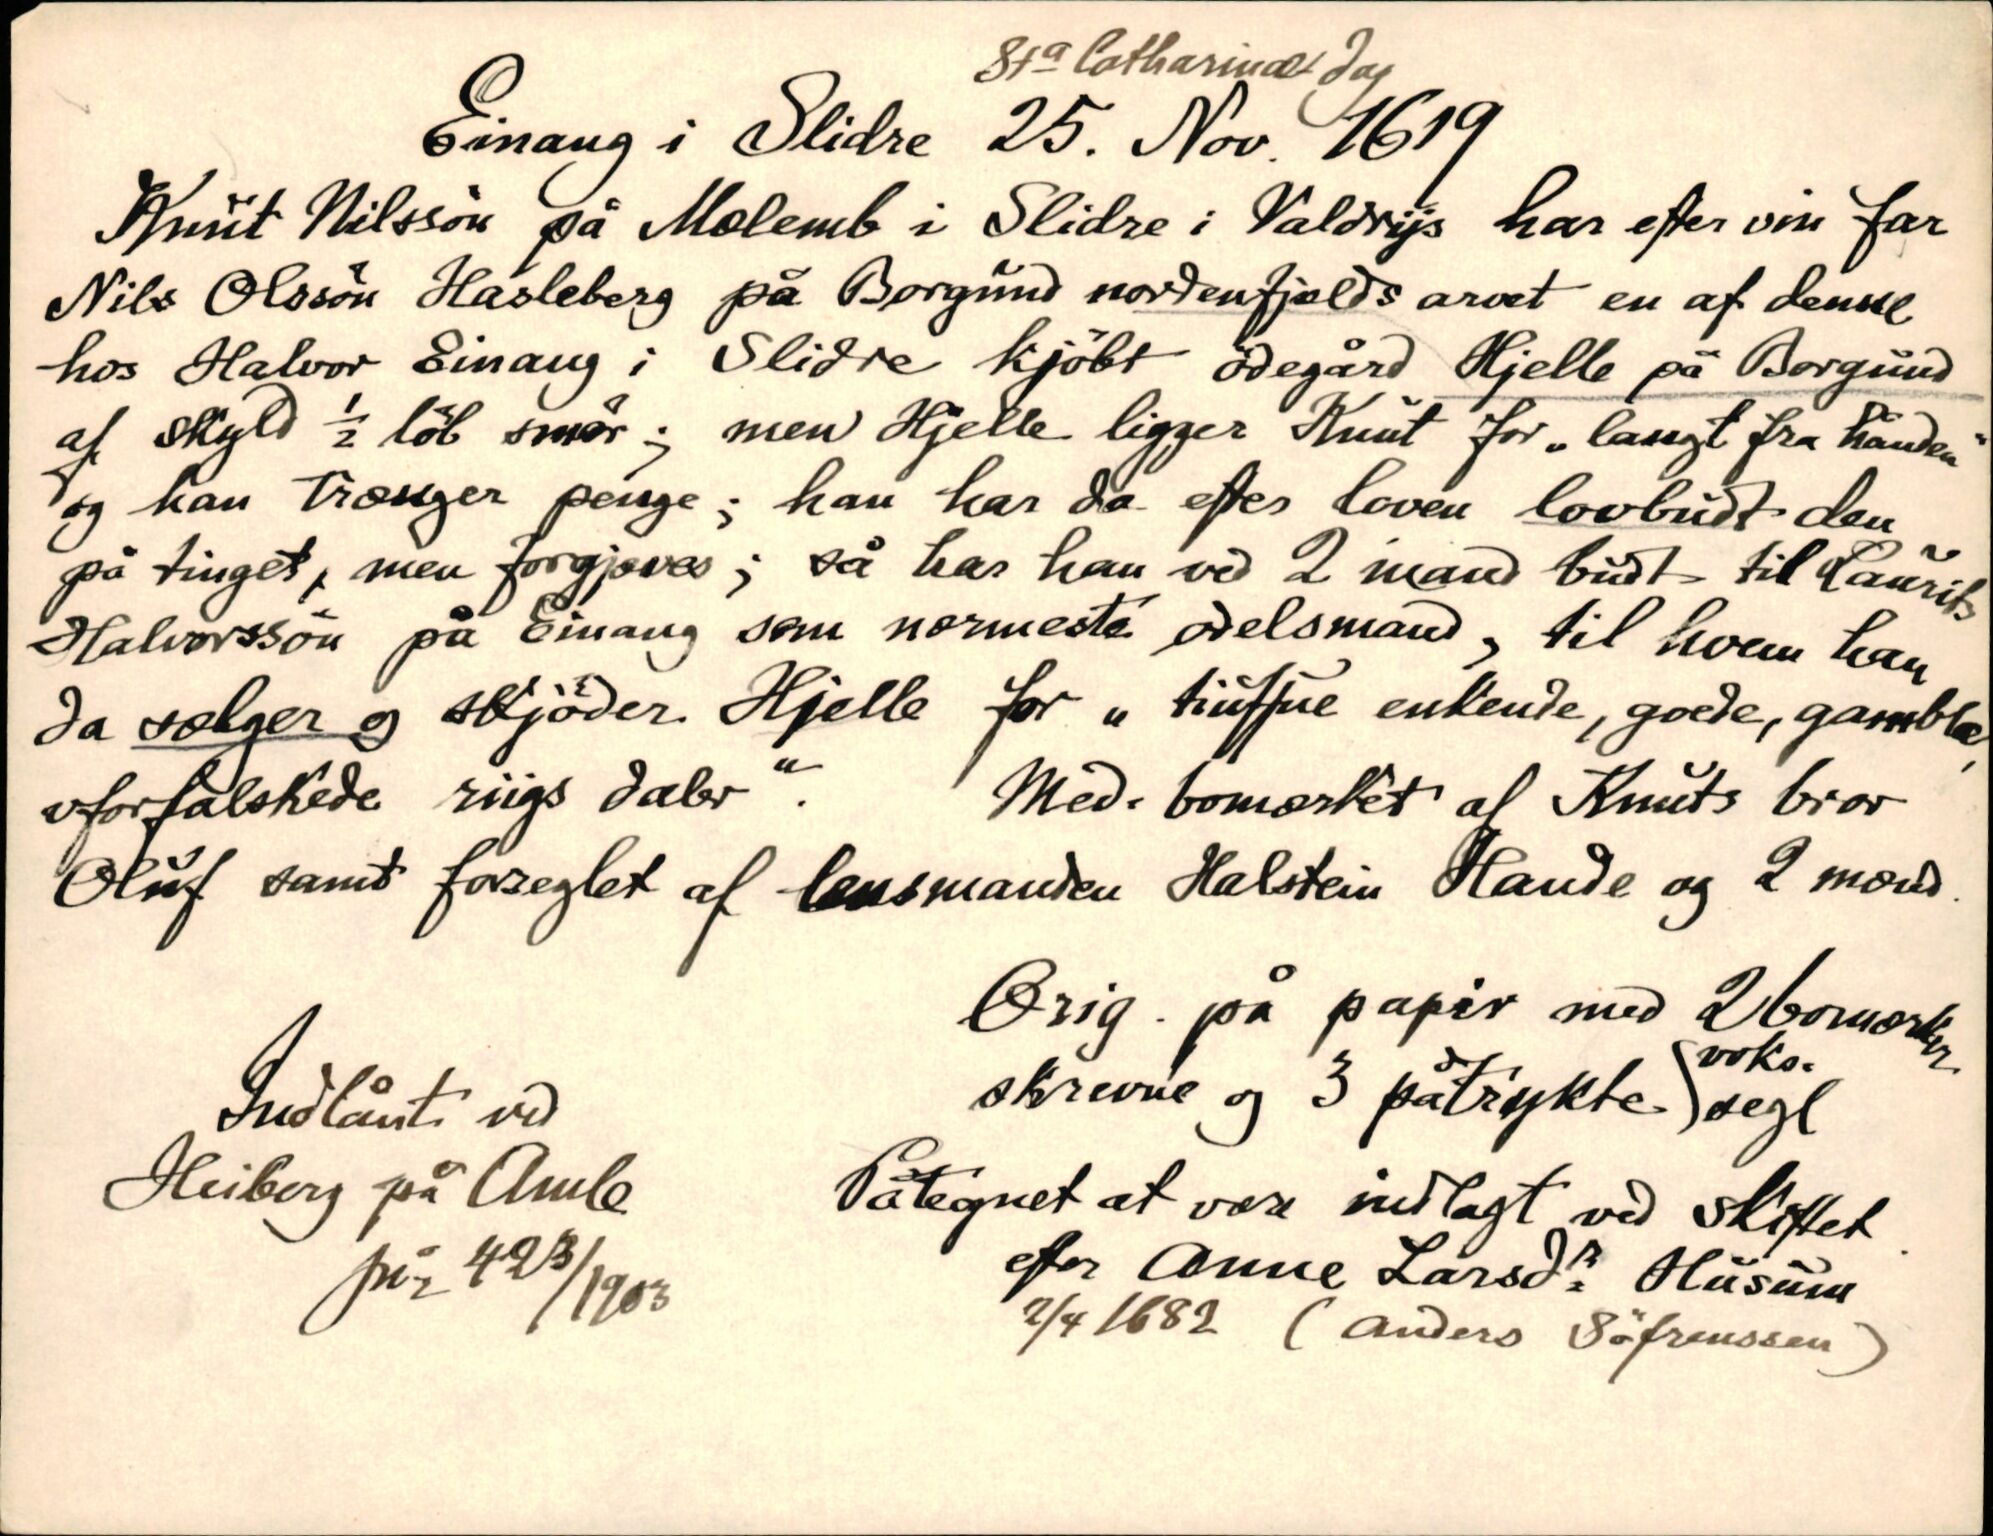 Sta Catharinæ dag
Einang i Slidre 25. Nov. 1619
Knut Nilssön på Mølemb i Slidre i Valdrijs har efter sin far
Nils Olssön Hasleberg på Borgund nordenfjelds arvet en af denne
hos Halvor Einang i Slidre kjöbt ödegård Hjelle på Borgund
af skyld ½ löb smör; men Hjelle ligger Knut for „langt fra hånden“
og han trænger penge; han har da efter loven lovbudt den
på tinget, men forgjæves; så har han ved 2 mænd budt til Laurits
Halvorssön på Einang som nærmeste odelsmand, til hvem han
da sælger og skjöder Hjelle for „tiuffue enkende, goede, gamble,
vforfalskede riigs daler“. Med bomærket af Knuts bror
Oluf samt forseglet af lensmanden Halstein Hande og 2 mænd.
Orig. på papir med 2 bomærker
skrevne og 3 påtrykte voks.
segl
Indlånt ved
Heiberg på Amle
påtegnet at være indlagt ved skiftet
efter Anne Larsdr. Husum
2/4 1682 (Anders Söfrenssen)
42 3/1903